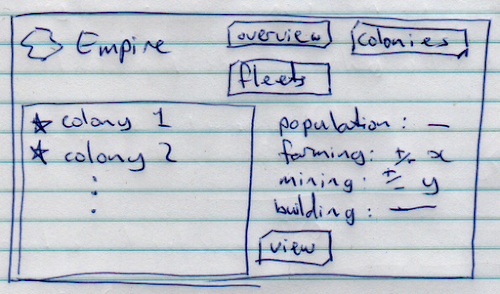 Empire
overview
colonies
fleets
colony 1
colony 2
population: —
farming: +/- x
mining: +/- y
building: —
view